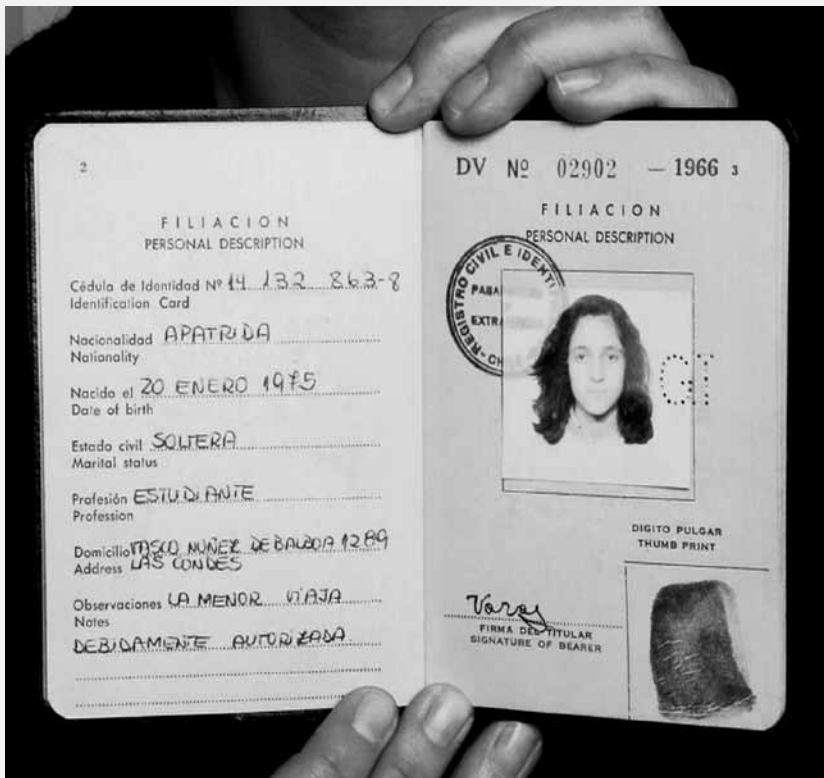 2
FILIACION
PERSONAL DESCRIPTION
Cédula de Identidad Nº 14 132 863-8
Identification Card
Nacionalidad APATRIDA
Nationality
Nacido el 20 ENERO 1975
Date of birth
Estado civil SOLTERA
Marital status
Profesión ESTUDIANTE
Profession
Domicilio VASCO NUÑEZ DE BALBOA 1289
Address LAS CONDES
Observaciones LA MENOR VIAJA
Notes
DEBIDAMENTE AUTORIZADA
DV Nº 02902 — 1966 3
FILIACION
PERSONAL DESCRIPTION
REGISTRO CIVIL E IDENTI
CHILE
GT
DIGITO PULGAR
THUMB PRINT
FIRMA DEL TITULAR
SIGNATURE OF BEARER